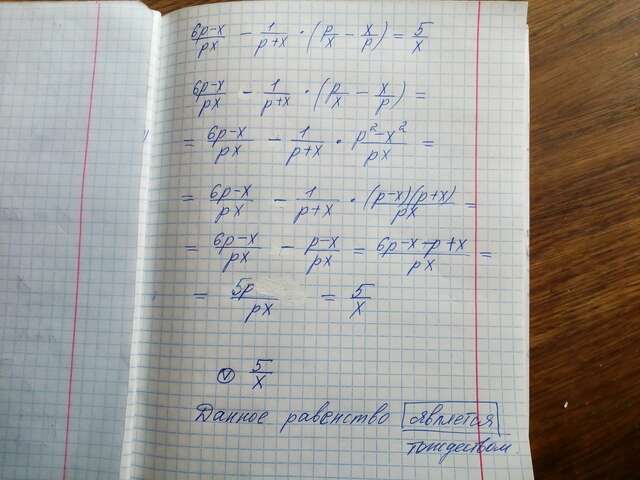 (6p-x)/(px) - 1/(p+x) · (p/x - x/p) = 5/x
(6p-x)/(px) - 1/(p+x) · (p/x - x/p) =
= (6p-x)/(px) - 1/(p+x) · (p²-x²)/(px) =
= (6p-x)/(px) - 1/(p+x) · ((p-x)(p+x))/(px) =
= (6p-x)/(px) - (p-x)/(px) = (6p-x-p+x)/(px) =
= 5p/(px) = 5/x
5/x
Данное равенство является
тождеством.